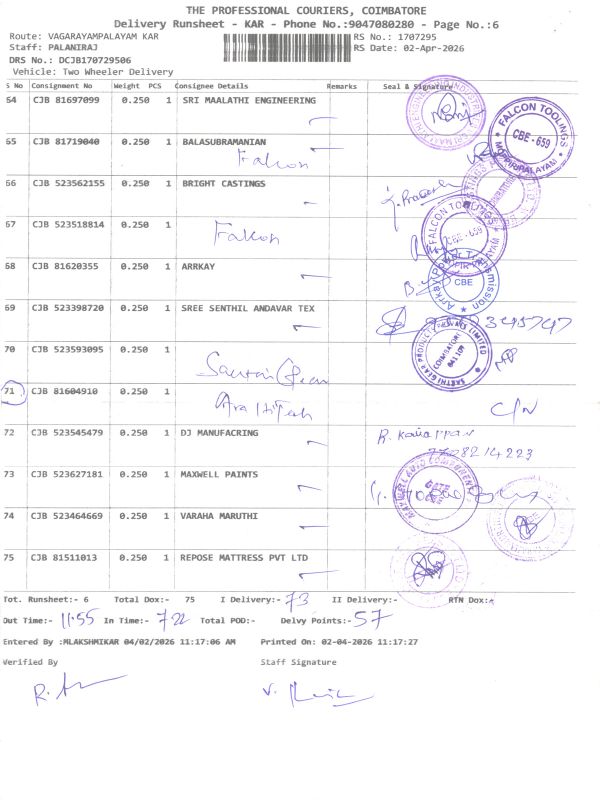 THE PROFESSIONAL COURIERS, COIMBATORE
Delivery Runsheet - KAR - Phone No.:9047080280 - Page No.:6
Route: VAGARAYAMPALAYAM KAR RS No.: 1707295
Staff: PALANIRAJ RS Date: 02-Apr-2026
DRS No.: DCJB170729506
Vehicle: Two Wheeler Delivery
S No Consignment No Weight PCS Consignee Details Remarks Seal & Signature
64 CJB 81697099 0.250 1 SRI MAALATHI ENGINEERING
FALCON TOOLINGS
CBE - 659
MOPPIRIPALAYAM
65 CJB 81719040 0.250 1 BALASUBRAMANIAN
Falcon
66 CJB 523562155 0.250 1 BRIGHT CASTINGS
67 CJB 523518814 0.250 1
Falcon
FALCON TOOLINGS
CBE - 659
68 CJB 81620355 0.250 1 ARRKAY
CBE
69 CJB 523398720 0.250 1 SREE SENTHIL ANDAVAR TEX
70 CJB 523593095 0.250 1
COIMBATORE
641 107
71 CJB 81604910 0.250 1
C/N
72 CJB 523545479 0.250 1 DJ MANUFACRING
73 CJB 523627181 0.250 1 MAXWELL PAINTS
74 CJB 523464669 0.250 1 VARAHA MARUTHI
75 CJB 81511013 0.250 1 REPOSE MATTRESS PVT LTD
Tot. Runsheet:- 6 Total Dox:- 75 I Delivery:- 73 II Delivery:- RTN Dox:-
Out Time:- 11.55 In Time:- 722 Total POD:- Delvy Points:- 57
Entered By :MLAKSHMIKAR 04/02/2026 11:17:06 AM Printed On: 02-04-2026 11:17:27
Verified By Staff Signature